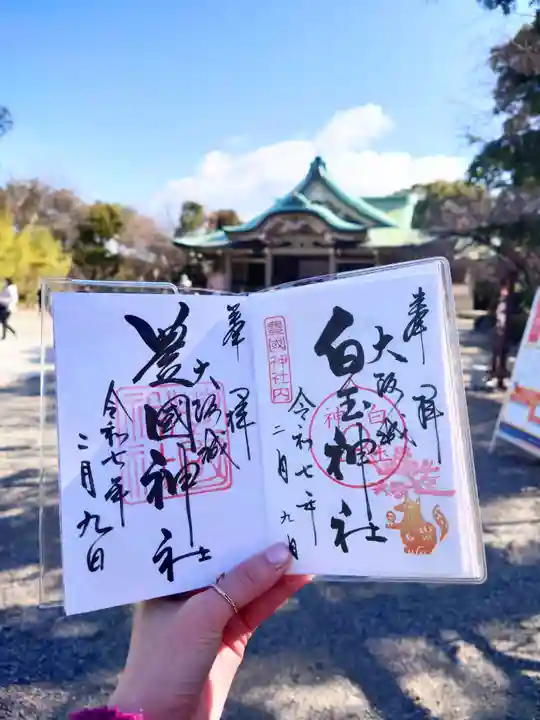 奉拝
大阪城
白玉神社
豊國神社内
令和七年
二月九日
白玉
神
奉拝
大坂城
豊國神社
令和七年
二月九日